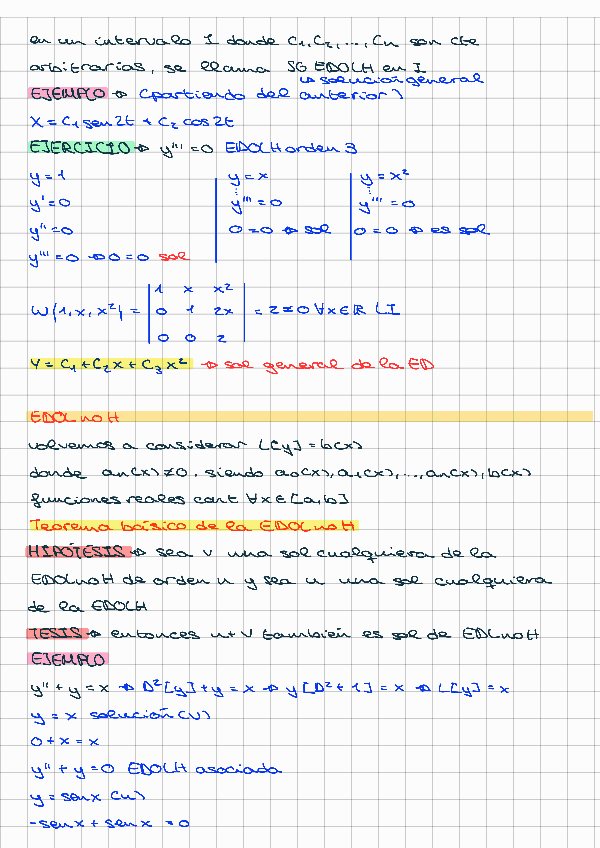 en un intervalo I donde C1, C2, ..., Cn son cte
arbitrarias, se llama SG EDOLH en I
↳ solución general
EJEMPLO → (partiendo del anterior)
x = C₁ sen 2t + C₂ cos 2t
EJERCICIO → y''' = 0 EDOLH orden 3
y = 1 | y = x | y = x²
y' = 0 | ⋮ y''' = 0 | ⋮ y''' = 0
y'' = 0 | 0 = 0 → sol | 0 = 0 → es sol
y''' = 0 → 0 = 0 sol
W(1, x, x²) = | 1 x x² |
| 0 1 2x | = 2 ≠ 0 ∀x ∈ ℝ LI
| 0 0 2 |
Y = C₁ + C₂x + C₃x² → sol general de la ED
EDOL no H
volvemos a considerar L[y] = b(x)
donde an(x) ≠ 0. siendo a0(x), a1(x), ..., an(x), b(x)
funciones reales cont ∀x ∈ [a,b]
Teorema básico de la EDOL no H
HIPÓTESIS → sea v una sol cualquiera de la
EDOL no H de orden n y sea u una sol cualquiera
de la EDOLH
TESIS → entonces u + v también es sol de EDL no H
EJEMPLO
y'' + y = x → D²[y] + y = x → y[D² + 1] = x → L[y] = x
y = x solución (v)
0 + x = x
y'' + y = 0 EDOLH asociada
y = sen x (u)
-sen x + sen x = 0